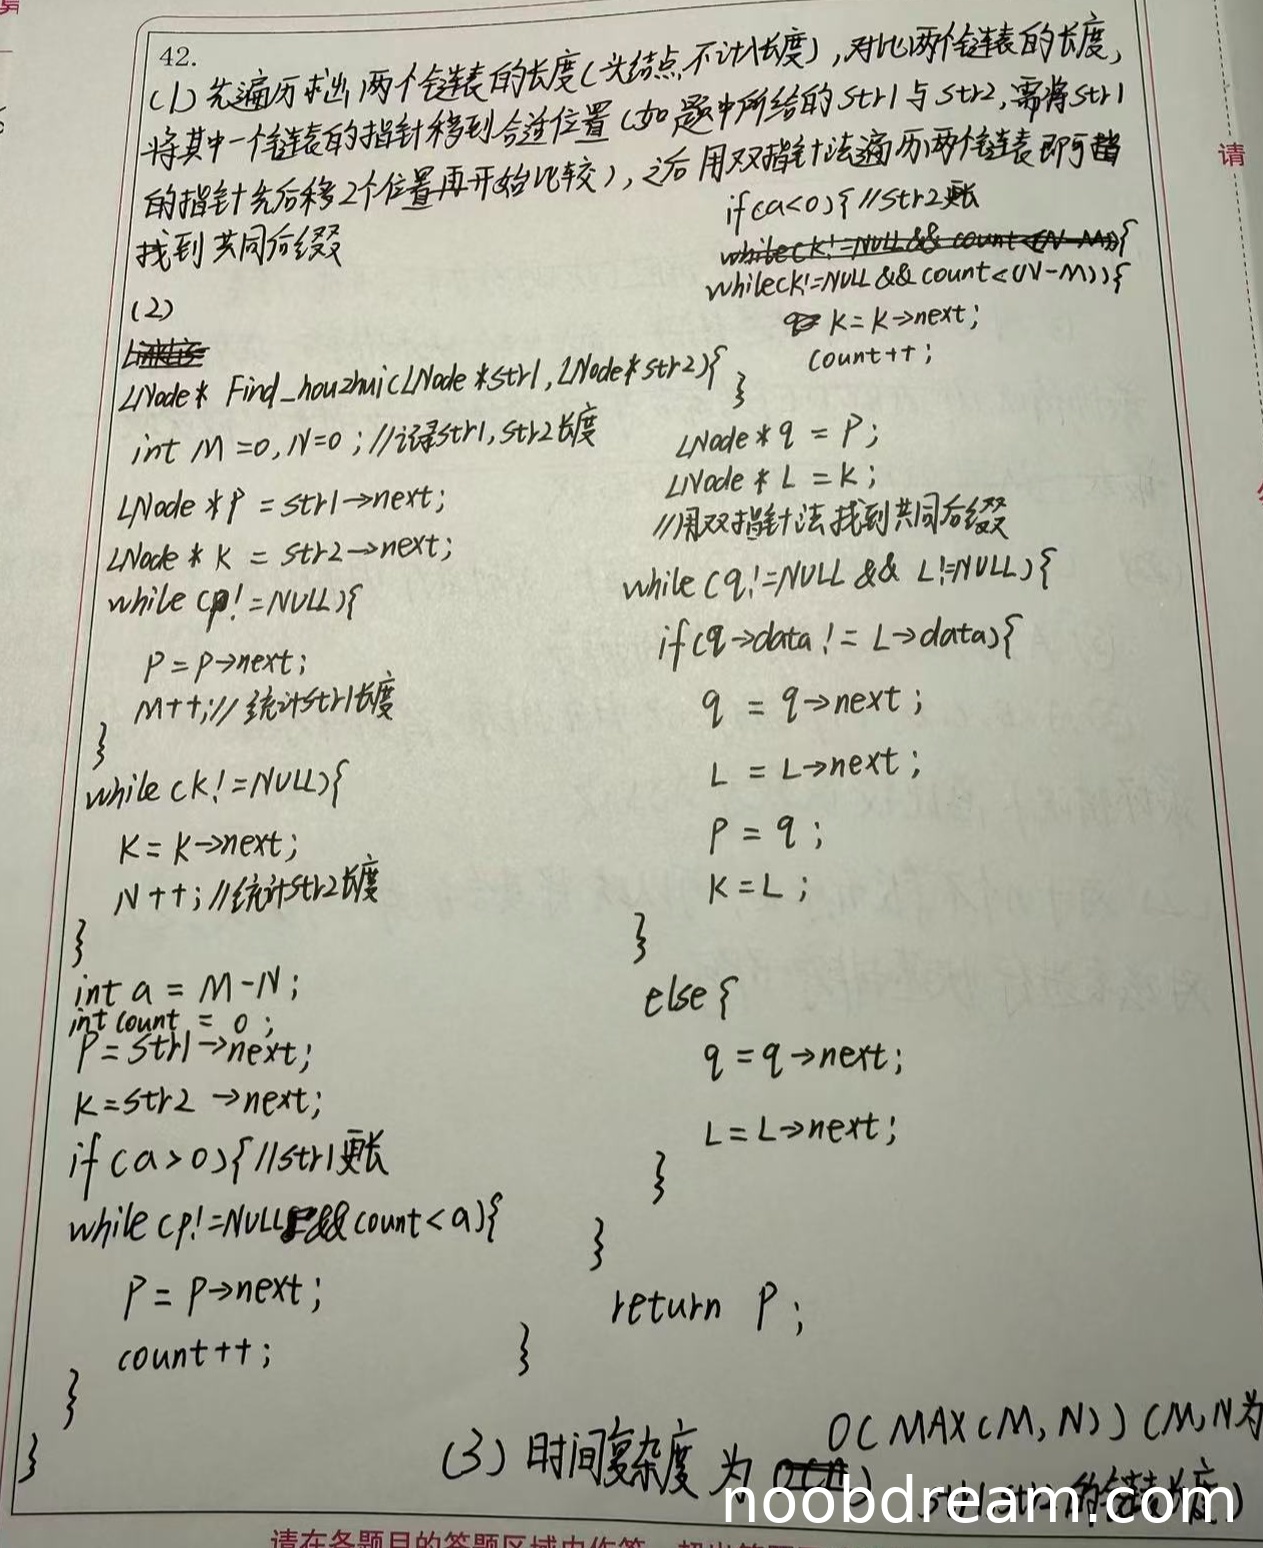 42.
(1)先遍历求出两个链表的长度(头结点不计入长度),对比两个链表的长度,
将其中一个链表的指针移到合适位置(如题中所给的str1与str2,需将str1
的指针先后移2个位置再开始比较),之后用双指针法遍历两个链表即可
找到共同后缀
(2)
LNode* Find_houzhui(LNode *str1, LNode*str2){
int M=0, N=0; //记录str1, str2长度
LNode *P = str1->next;
LNode * K = str2->next;
while (p!=NULL){
P=P->next;
M++;//统计str1长度
}
while (K!=NULL){
K=K->next;
N++;//统计str2长度
}
int a = M-N;
int count = 0;
P=str1->next;
K=str2->next;
if(a>0){//str1更长
while (p!=NULL&&count<a){
P=P->next;
count++;
}
}
if(a<0){//str2更长
while(k!=NULL&&count<(N-M)){
while(K!=NULL&&count<(N-M)){
K=K->next;
count++;
}
LNode *q = P;
LNode * L = K;
//用双指针法找到共同后缀
while (q!=NULL && L!=NULL){
if(q->data != L->data){
q = q->next;
L = L->next;
P = q;
K=L;
}
else{
q=q->next;
L=L->next;
}
}
return P;
}
(3)时间复杂度为 O(MAX(M,N))(M,N为
str1,str2的链表长度)
请在各题目的答题区域内作答,超出
请
noobdream.com